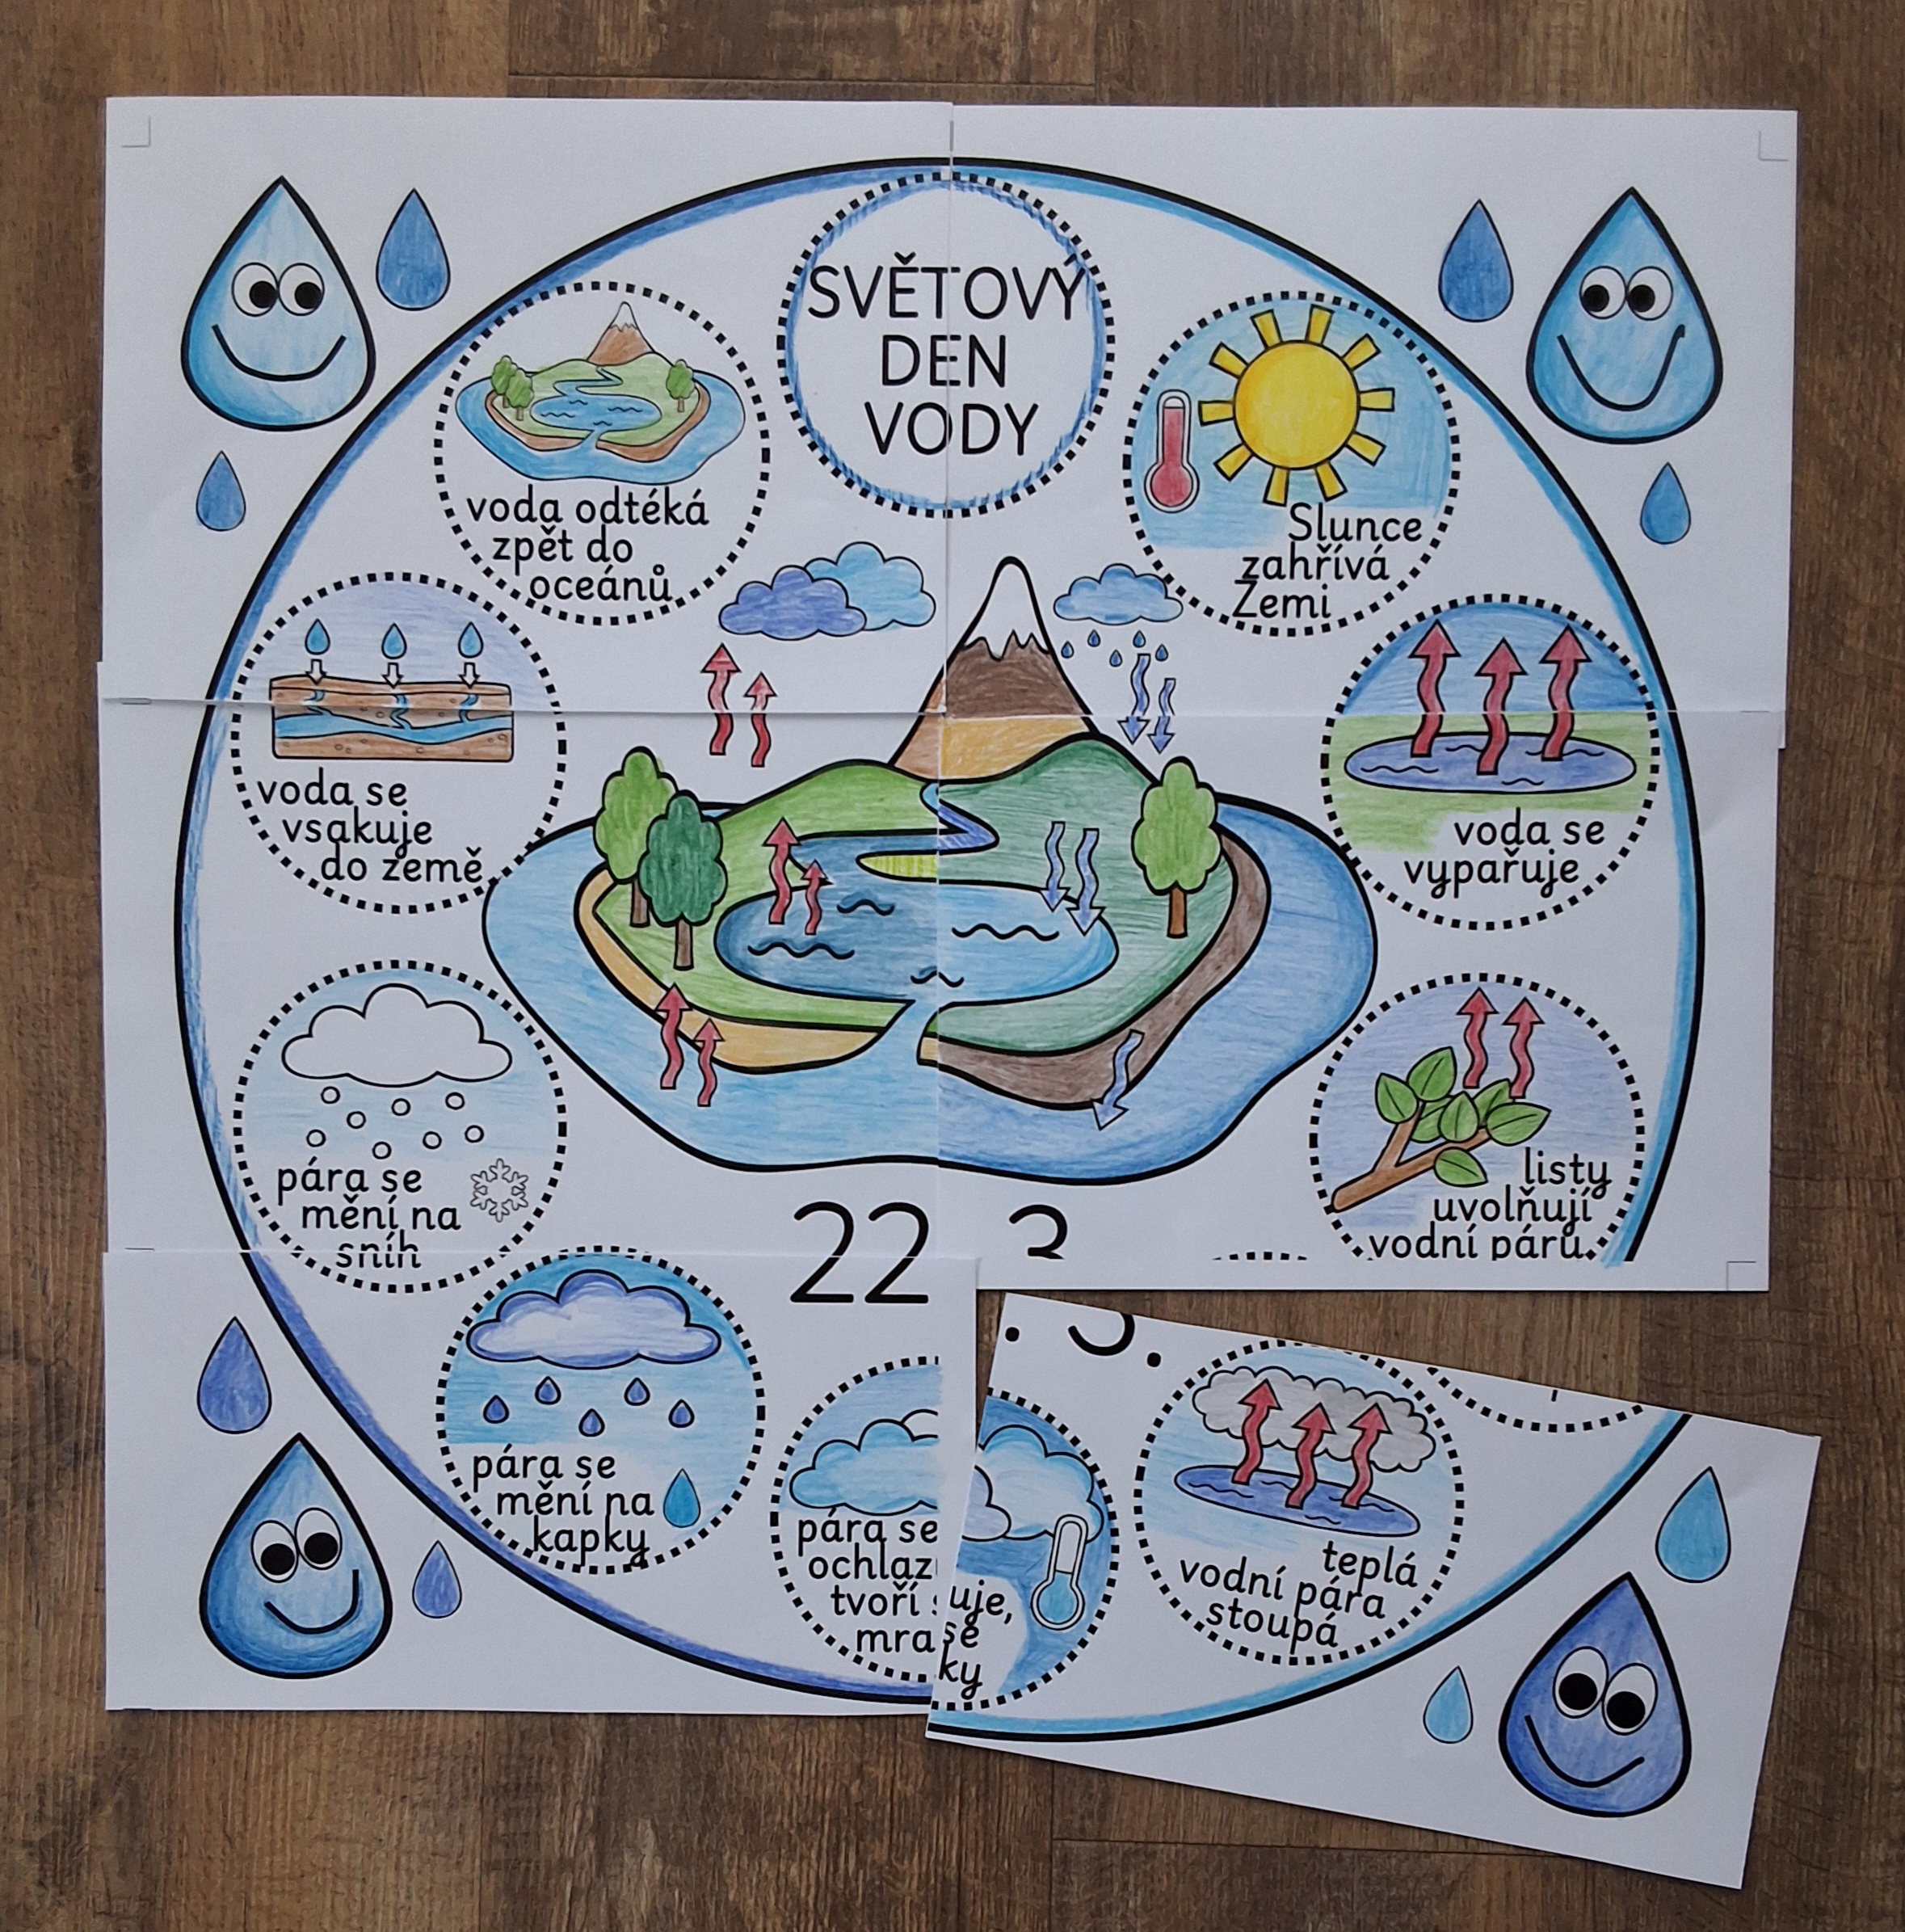 SVĚTOVÝ
DEN
VODY
Slunce
zahřívá
Zemi
voda se
vypařuje
listy
uvolňují
vodní páru
teplá
vodní pára
stoupá
pára se
ochlazuje,
tvoří se
mraky
pára se
mění na
kapky
pára se
mění na
sníh
voda se
vsakuje
do země
voda odtéká
zpět do
oceánů
22. 3.